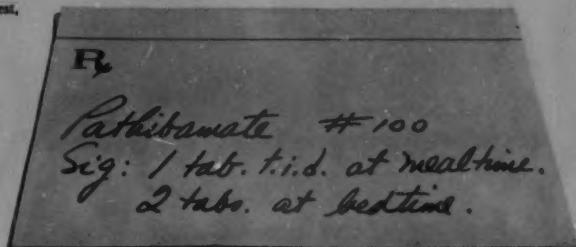 ℞
Pathibamate #100
Sig: 1 tab. t.i.d. at mealtime.
2 tabs. at bedtime.